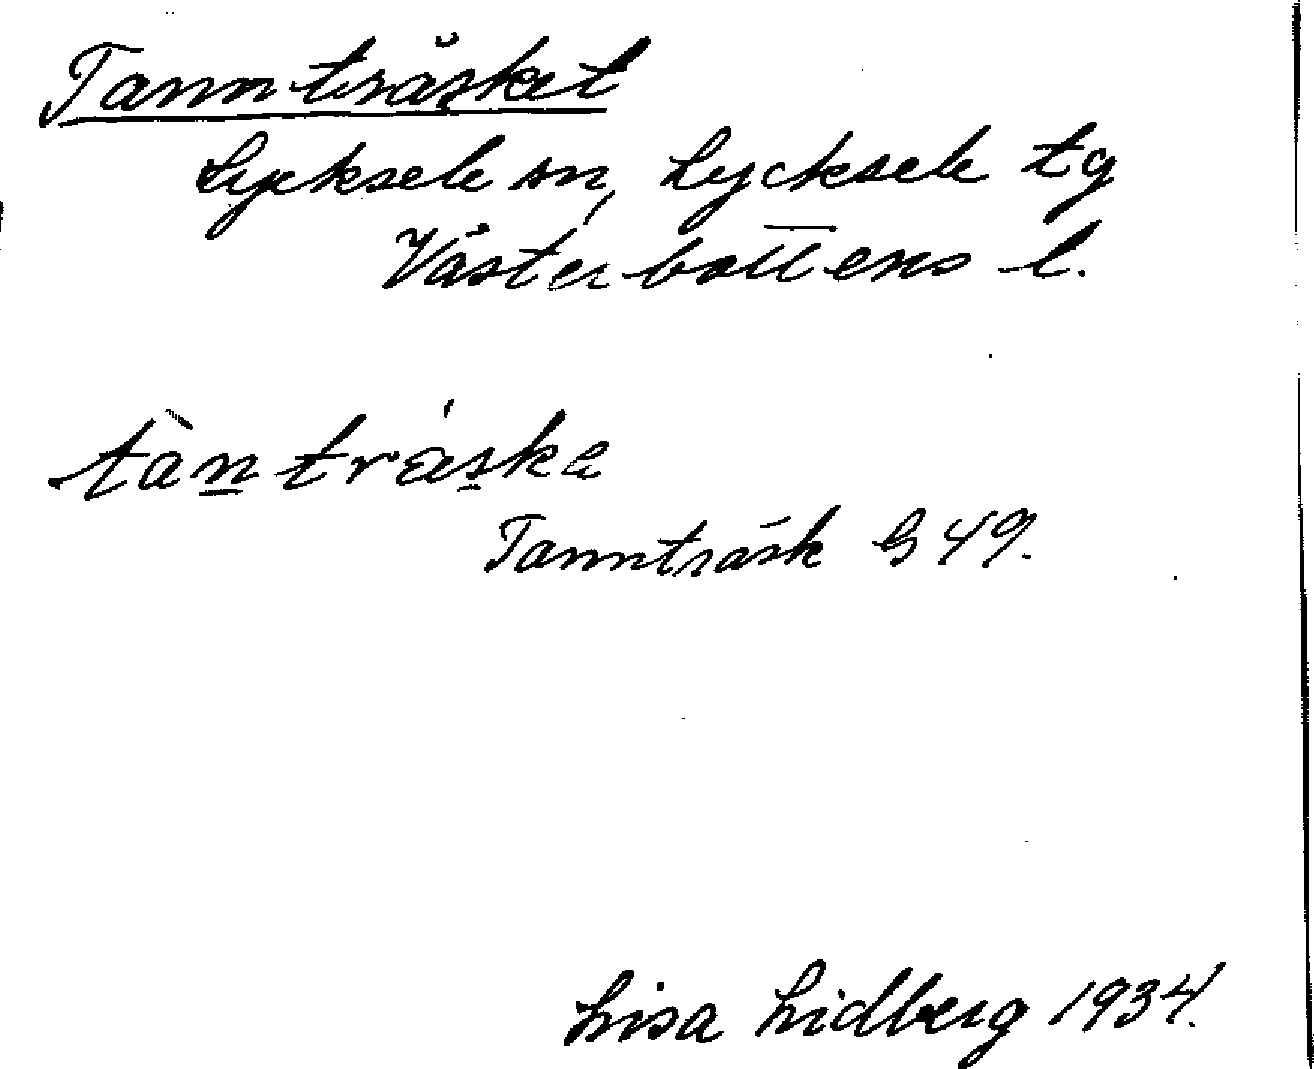 Tannträsket
Lycksele sn, Lycksele tg
Västerbottens l.
tàntráska
Tannträsk G 49.
Lisa Lidberg 1934.